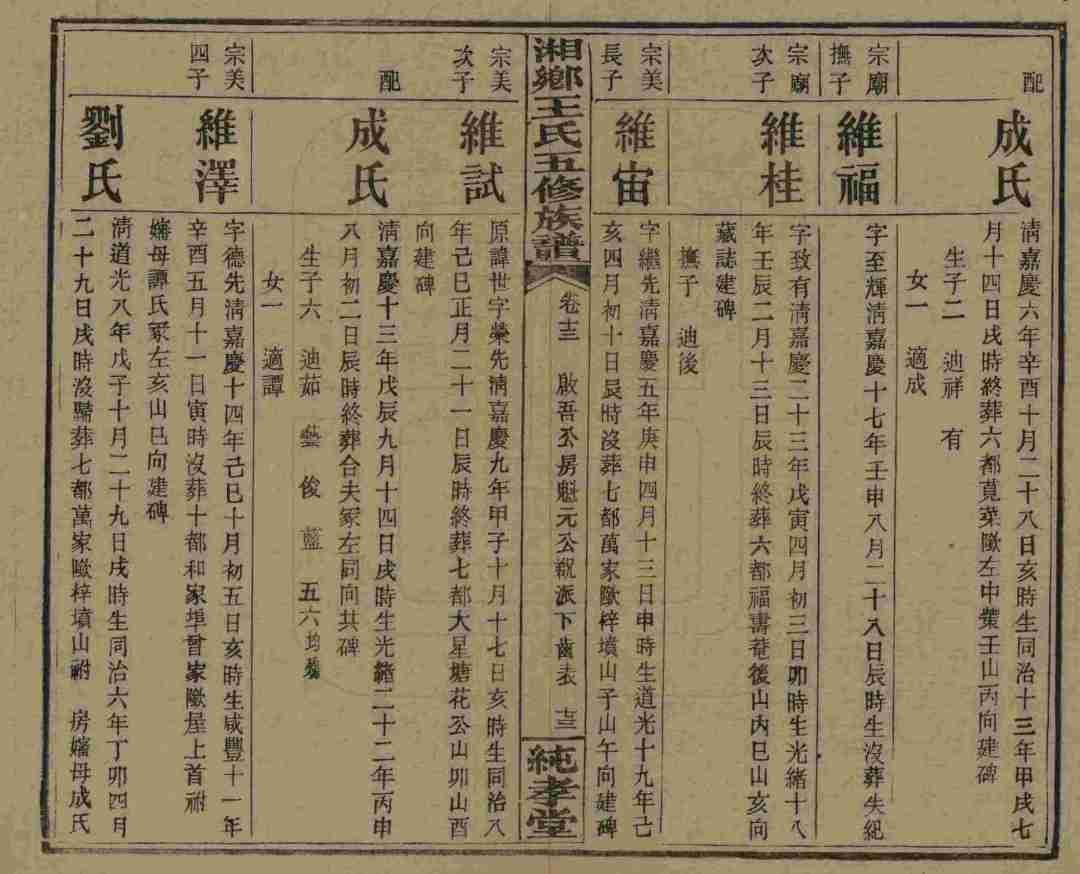 配
成氏
清嘉慶六年辛酉十月二十八日亥時生同治十三年甲戌七
月十四日戌時終葬六都莧菜㘭左中叢壬山丙向建碑
生子二　迪祥　有
女一　適成
宗廟
撫子
維福
字至輝清嘉慶十七年壬申八月二十八日辰時生沒葬失紀
宗廟
次子
維桂
字致有清嘉慶二十三年戊寅四月初三日卯時生光緒十八
年壬辰二月十三日辰時終葬六都福壽菴後山內巳山亥向
藏誌建碑
撫子　迪後
宗美
長子
維宙
字繼先清嘉慶五年庚申四月十三日申時生道光十九年己
亥四月初十日辰時沒葬七都萬家㘭梓墳山子山午向建碑
湘鄉王氏五修族譜
卷十三　啟吾公房魁元公祝派下齒表　十三
純孝堂
宗美
次子
維試
原諱世字榮先清嘉慶九年甲子十月十七日亥時生同治八
年己巳正月二十一日辰時終葬七都大星塘花公山卯山酉
向建碑
配
成氏
清嘉慶十三年戊辰九月十四日戌時生光緒二十二年丙申
八月初二日辰時終葬合夫冢左同向共碑
生子六　迪茹　藝　俊　藍　五六均殤
女一　適譚
宗美
四子
維澤
字德先清嘉慶十四年己巳十月初五日亥時生咸豐十一年
辛酉五月十一日寅時沒葬十都和家埠曾家㘭屋上首祔
嬸母譚氏冢左亥山巳向建碑
劉氏
清道光八年戊子十月二十九日戌時生同治六年丁卯四月
二十九日戌時沒歸葬七都萬家㘭梓墳山祔　房嬸母成氏